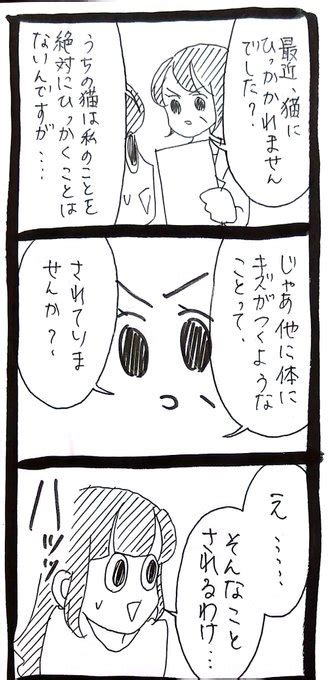 最近、猫に
ひっかかれません
でした？
うちの猫は私のことを
絶対にひっかくことは
ないんですが、…
じゃあ他に体に
キズがつくような
ことって、
されていま
せんか？
え……
そんなこと
されるわけ…
ハッッ